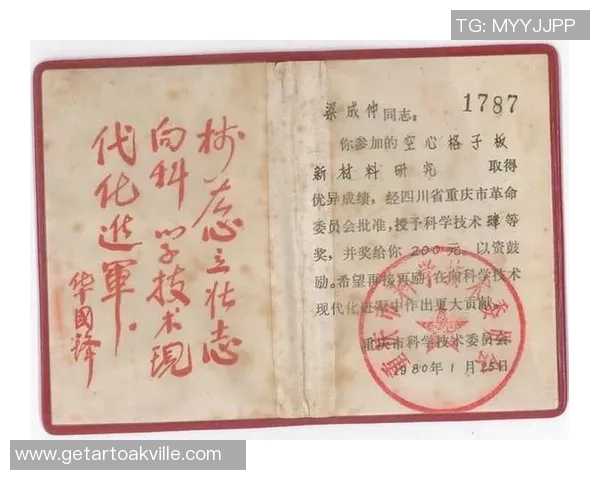 TG: MYYJJPP
树雄心立壮志
向科学技术现
代化進軍。
华国锋
1787
梁成仲同志：
你参加的空心格子板
新材料研究 取得
优异成绩，经四川省重庆市革命
委员会批准，授予科学技术肆等
奖，并奖给你200元，以资鼓
励。希望再接再励，在向科学技术
现代化进军中作出更大贡献。
重庆市科学技术委员会
1980年1月25日
重庆市科学技术委员会
www.getartoakville.com